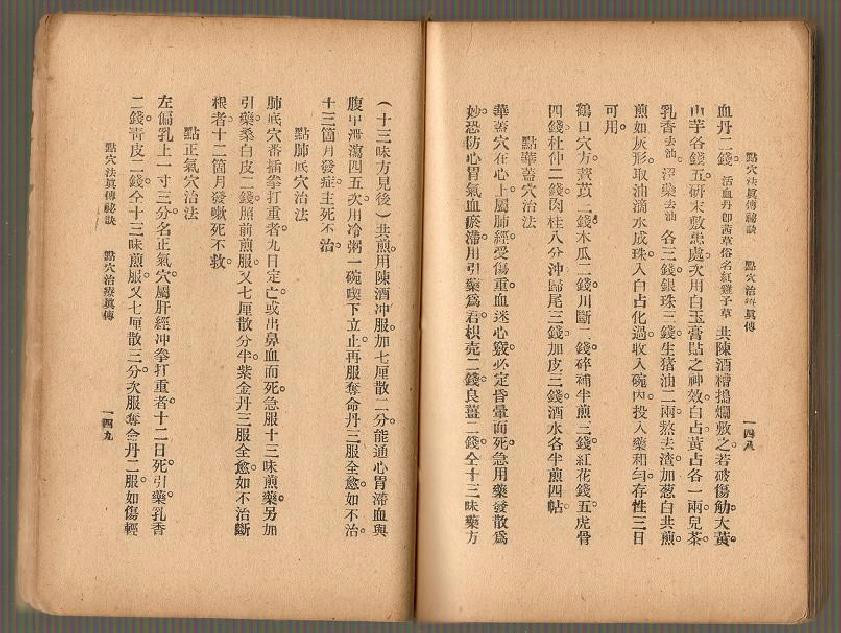 點穴法眞傳秘訣 點穴治療眞傳 一四八
血丹二錢。活血丹卽茜草俗名紅雞子草 共陳酒糟搗爛敷之若破傷觔大黃。
山芋各錢五。研末敷患處。次用白玉膏貼之神效。白占。黃占各一兩。兒茶。
乳香去油。沒藥去油 各三錢。銀珠三錢。生猪油二兩。熬去渣。加葱白共煎。
煎如灰形。取油滴水成珠。入白占化過。收入碗內。投入藥和勻。存性三日
可用。
鶴口穴方。薏苡二錢。木瓜二錢。川斷二錢。碎補半煎三錢。紅花錢五。虎骨
四錢。杜仲二錢。肉桂八分沖。歸尾三錢。加皮三錢。酒水各半煎四帖。
點華蓋穴治法
華蓋穴在心上。屬肺經。受傷重血迷心竅。必定昏暈而死。急用藥發散爲
妙。恐防心胃氣血瘀滯。用引藥爲君。枳壳二錢。良薑二錢。仝十三味藥方
(十三味方見後)共煎。用陳酒冲服。加七厘散二分。能通心胃滯血。與
腹中泄瀉四五次。用冷粥一碗喫下立止。再服奪命丹三服全愈。如不治。
十三箇月發症。主死不治。
點肺底穴治法
肺底穴番插拳打重者。九日定亡。或出鼻血而死。急服十三味煎藥。另加
引藥桑白皮二錢。照前煎服。又七厘散分半。紫金丹三服全愈。如不治斷
根者。十二箇月發嗽死不救。
點正氣穴治法
左偏乳上一寸三分。名正氣穴。屬肝經。冲拳打重者。十二日死。引藥。乳香
二錢。靑皮二錢。仝十三味煎服。又七厘散三分。次服奪命金丹二服。如傷輕
點穴法眞傳秘訣 點穴治療眞傳 一四九